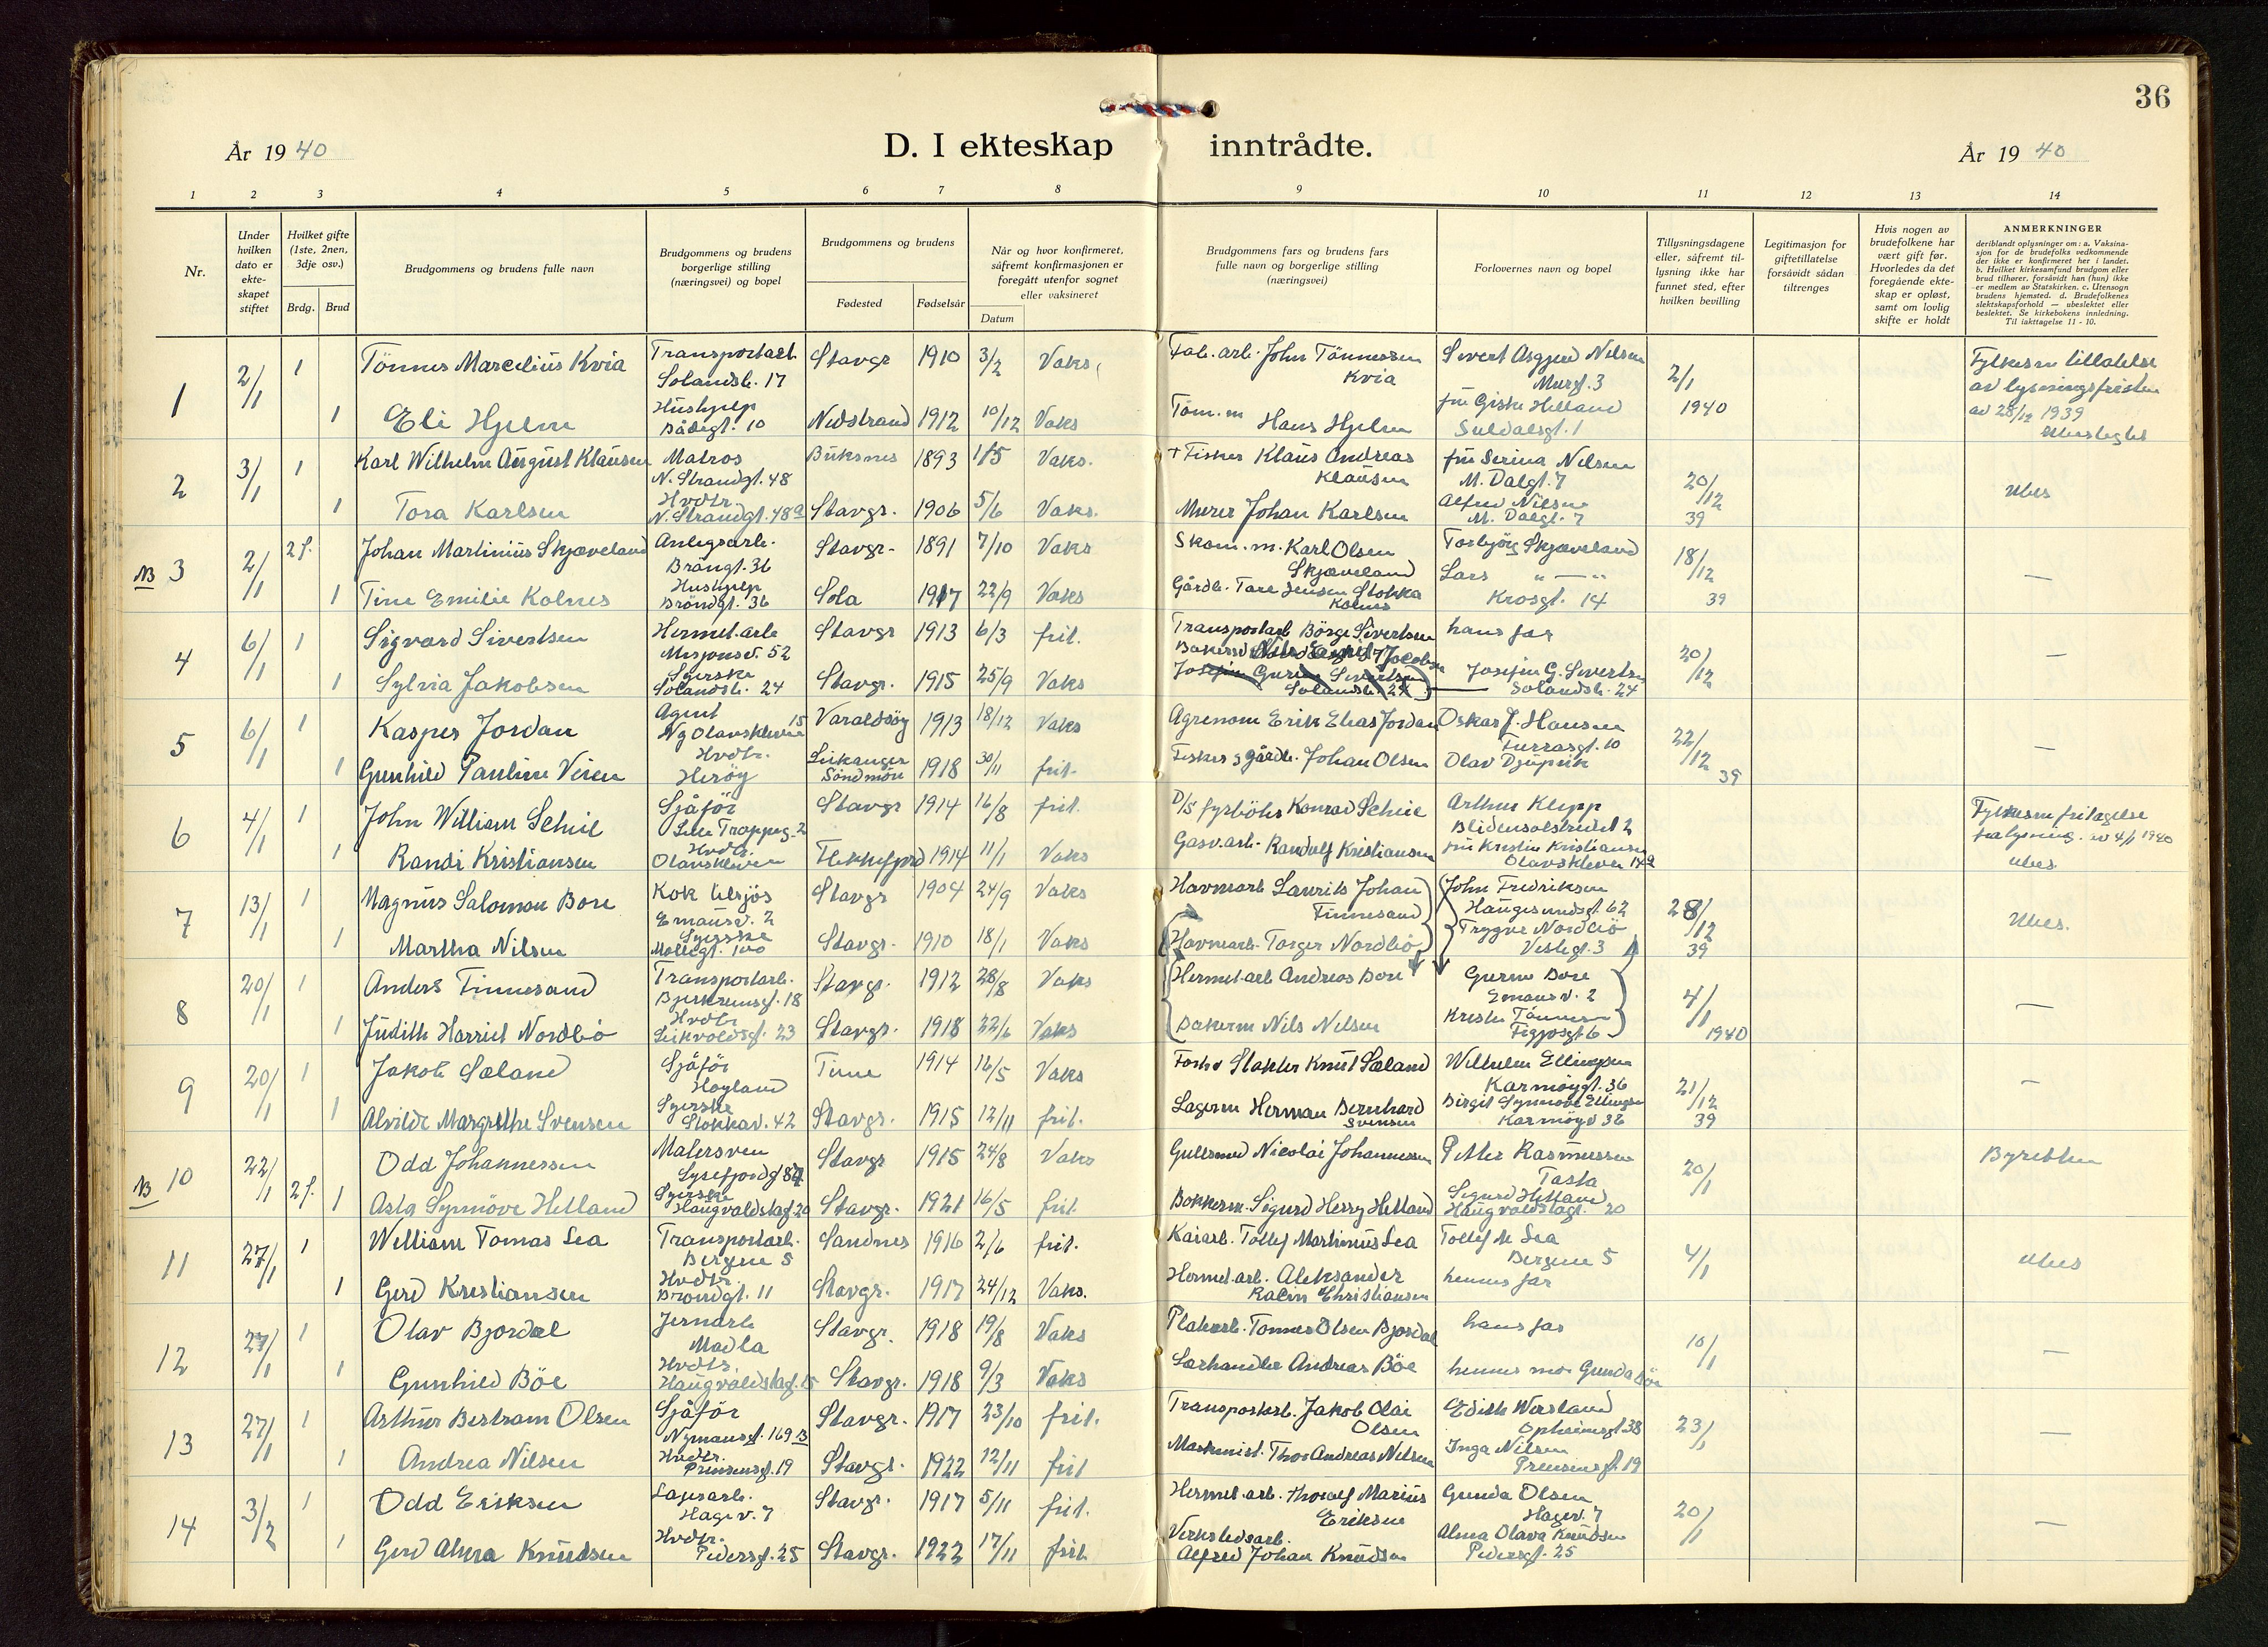 36
År 19 40
D. I ekteskap inntrådte.
År 19 40
1 2 3 4 5 6 7 8 9 10 11 12 13 14
Nr.
Under hvilken dato er ekte-skapet stiftet
Hvilket gifte (1ste, 2nen, 3dje osv.)
Brdg. Brud
Brudgommens og brudens fulle navn
Brudgommens og brudens borgerlige stilling (næringsvei) og bopel
Brudgommens og brudens
Fødested Fødselsår
Når og hvor konfirmeret, såfremt konfirmasjonen er foregått utenfor sognet eller vaksineret
Datum
Brudgommens fars og brudens fars fulle navn og borgerlige stilling (næringsvei)
Forlovernes navn og bopel
Tillysningsdagene eller, såfremt til-lysning ikke har funnet sted, efter hvilken bevilling
Legitimasjon for giftetillatelse forsåvidt sådan tiltrenges
Hvis nogen av brudefolkene har vært gift før. Hvorledes da det foregående ekte-skap er opløst, samt om lovlig skifte er holdt
ANMERKNINGER
deriblandt oplysninger om: a. Vaksina-sjon for de brudefolks vedkommende der ikke er konfirmeret her i landet. b. Hvilket kirkesamfund brudgom eller brud tilhører, forsåvidt han (hun) ikke er medlem av Statskirken. c. Utensogn brudens hjemsted. d. Brudefolkenes slektskapsforhold — ubeslektet eller beslektet. Se kirkebokens innledning. Til iakttagelse 11 - 10.
1 2/1 1 Tönnes Marcelius Kvia Transportarb. Solandsb. 17 Stavgr 1910 3/2 Vaks. Fab. arb. John Tönnessen Kvia Sivert Asgjerd Nilsen Murg. 3 2/1 1940 Fylkesm tillatelse av lysningsfristen av 28/12 1939
1 Eli Hjelm Hushjelp Bådsgt. 10 Nedstrand 1912 10/12 Vaks Töm. m Hans Hjelm fru Giske Helland Suldalsgt. 1
2 3/1 1 Karl Wilhelm August Klausen Matros N. Strandgt. 48 Buksnes 1893 1/5 Vaks. + Fisker Klaus Andreas Klausen fru Serina Nilsen M. Dalgt. 7 20/12 39 Ubes
1 Tora Karlsen Hvdtr. N. Strandgt. 48a Stavgr. 1906 5/6 Vaks. Murer Johan Karlsen Alfred Nilsen M. Dalgt. 7
NB 3 2/1 2 f. Johan Martinius Skjæveland Anlegsarb. Bröngt. 36 Stavgr. 1891 7/10 Vaks Skom. m. Karl Olsen Skjæveland Torbjörg Skjæveland 18/12 39 —
1 Tine Emilie Kolnes Hushjelp Bröndgt. 36 Sola 1917 22/9 Vaks Gårdb. Tore Jensen Stokka Kolnes Lars " — " Krosgt. 14
4 6/1 1 Sigvard Sivertsen Hermet. arb Misjonsv. 52 Stavgr 1913 6/3 frit. Transportarb Börge Sivertsen hans far 20/12 —
1 Sylvia Jakobsen Syerske Solandsb. 24 Stavgr. 1915 25/9 Vaks Josefin G. Sivertsen Solandsb. 24
5 6/1 1 Kasper Jordan Agent Ng Olavskleven 15 Varaldsöy 1913 18/12 Vaks Agronom Erik Elias Jordan Oskar J. Hansen Furrasgt. 10 22/12 39 —
1 Gunhild Pauline Veien Hvdtr. Heröy Leikanger Söndmöre 1918 30/11 frit. Fisker og gårdb. Johan Olsen Olav Djupvik
6 4/1 1 John William Scheie Sjåför Lille Trappeg. 2 Stavgr 1914 16/8 frit. D/S fyrböter Konrad Scheie Arthur Klepp Blidensolstredet 2 Fylkesm fritagelse fra lysning. av 4/1 1940 Ubes.
1 Randi Kristiansen Hvdtr. Olavskleven Flekkefjord 1914 11/1 Vaks Gasv. arb. Randulf Kristiansen fru Kristin Kristiansen Olavskleven 14a
7 13/1 1 Magnus Salomon Bore Kok tilsjös Emausv. 2 Stavgr 1904 24/9 Vaks Havnearb Laurits Johan Finnesand John Fredriksen Haugesundsgt. 62 28/12 39 Ubes.
1 Martha Nilsen Syerske Möllegt. 100 Stavgr. 1910 18/1 Vaks Havnearb. Torger Nordbö Trygve Nordbö Vestegt. 3
8 20/1 1 Anders Finnesand Transportarb. Bjerkreimsgt. 18 Stavgr. 1912 28/8 Vaks Hermet. arb Andreas Bore Gurine Bore Emausv. 2 4/1 1940 —
1 Judith Harriet Nordbö Hvdtr Leikvoldsgt. 23 Stavgr. 1918 22/6 Vaks Bakerm Nils Nilsen
9 20/1 1 Jakob Sæland Sjåför Høyland Time 1914 16/5 Vaks Knut Sæland Wilhelm Ellingsen Karmöygt. 36 21/12 39 —
1 Alvilde Margrethe Svensen Syerske Stokkav. 42 Stavgr. 1915 12/11 frit. Lagerm Herman Bernhard Svensen Birgit Synnöve Ellingsen Karmöygt 36
NB 10 22/1 1 Odd Johannessen Malersven Lysefjordgt 8 Stavgr 1915 24/8 Vaks Gullsmed Nicolai Johannessen Petter Rasmussen Tasta 20/1 Byretten
2 f. 1 Asta Synnöve Helland Syerske Haugvaldstagt. 20 Stavgr. 1921 16/5 frit. Bökkerm. Sigurd Herry Helland Sigurd Helland Haugvaldstagt. 20
11 27/1 1 William Tomas Lea Transportarb. Bergene 5 Sandnes 1916 2/6 frit. Kaiarb. Tollef Martinius Lea Tollef M Lea Bergene 5 4/1 Ubes
1 Gerd Kristiansen Hvdtr. Bröndgt. 11 Stavgr. 1917 24/12 Vaks. Hermet. arb. Aleksander Christiansen hennes far
12 27/1 1 Olav Bjordal Jernarb Madla Stavgr. 1918 19/8 Vaks Tonnes Olsen Bjordal hans far 10/1 —
1 Gunhild Böe Hvdtr. Haugvaldstagt. 15 Stavgr. 1918 9/3 Vaks Andreas Böe hennes mor Gunda Böe
13 27/1 1 Arthur Bertram Olsen Sjåför Nymansgt. 169 B Stavgr. 1917 23/10 frit. Transportarb. Jakob Olai Olsen Edith Wersland Opheimsgt 38 23/1 —
1 Andrea Nilsen Hvdtr. Prinsensgt. 19 Stavgr. 1922 12/11 frit Maskinist. Thor Andreas Nilsen Inga Nilsen Prinsensgt. 19
14 3/2 1 Odd Eriksen Lagerarb. Hagev. 7 Stavgr. 1917 5/11 frit. Hermet. arb. Thoralf Marius Eriksen Gunda Olsen Hagev. 7 20/1 —
1 Gerd Alma Knudsen Hvdtr. Pedersgt. 25 Stavgr. 1922 17/11 frit. Verkstedsarb. Alfred Johan Knudsen Alma Olava Knudsen Pedersgt. 25